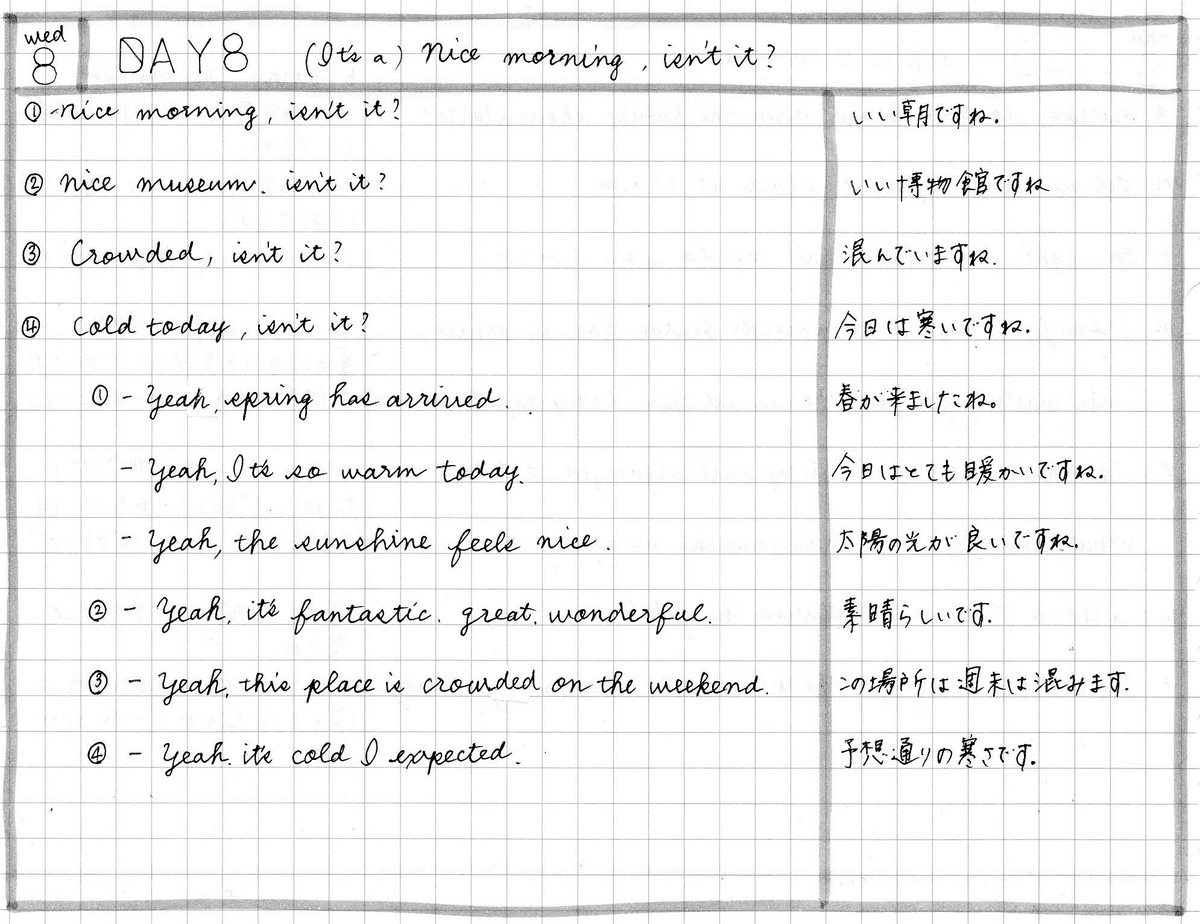 wed
8
DAY8 (It's a) Nice morning, isn't it?
① Nice morning, isn't it? いい朝ですね。
② Nice museum. isn't it? いい博物館ですね
③ Crowded, isn't it? 混んでいますね.
④ Cold today, isn't it? 今日は寒いですね.
① - Yeah, spring has arrived. 春が来ましたね。
- Yeah, It's so warm today. 今日はとても暖かいですね.
- Yeah, the sunshine feels nice. 太陽の光が良いですね.
② - Yeah, it's fantastic. great. wonderful. 素晴らしいです.
③ - Yeah, this place is crowded on the weekend. この場所は週末は混みます.
④ - Yeah. it's cold I expected. 予想通りの寒さです.